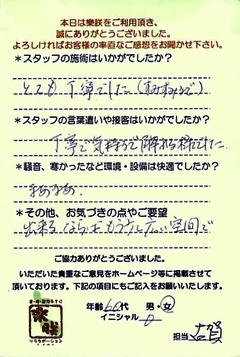 本日は樂咲をご利用頂き、
誠にありがとうございました。
よろしければお客様の率直なご感想をお聞かせ下さい。
*スタッフの施術はいかがでしたか?
とても丁寧でした
*スタッフの言葉遣いや接客はいかがでしたか?
丁寧で気持ちで
でした
*騒音、寒かったなど環境・設備は快適でしたか?
まあまあ、
*その他、お気づきの点やご要望
出来るならもう少し広い空間で
ご協力ありがとうございました。
いただいた貴重なご意見をホームページ等に掲載させて
頂いております。下記の項目にもご記入をお願いします。
年齢60代 男・女
イニシャル
担当 古賀